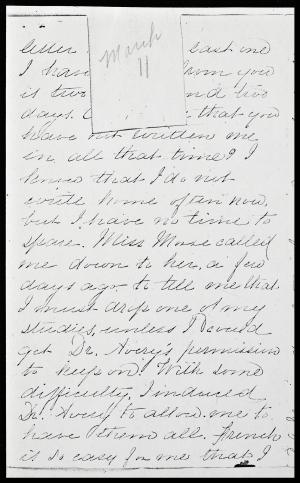 letter
March
11
last one
I have
from you
is two
and two
days.
that you
have not written me
in all that time? I
know that I do not
write home often now,
but I have no time to
spare. Miss Morse called
me down to her, a few
days ago, to tell me that
I must drop one of my
studies, unless I could
get Dr. Avery's permission
to keep on. With some
difficulty, I induced
Dr. Avery to allow me to
have them all. French
is so easy for me that I